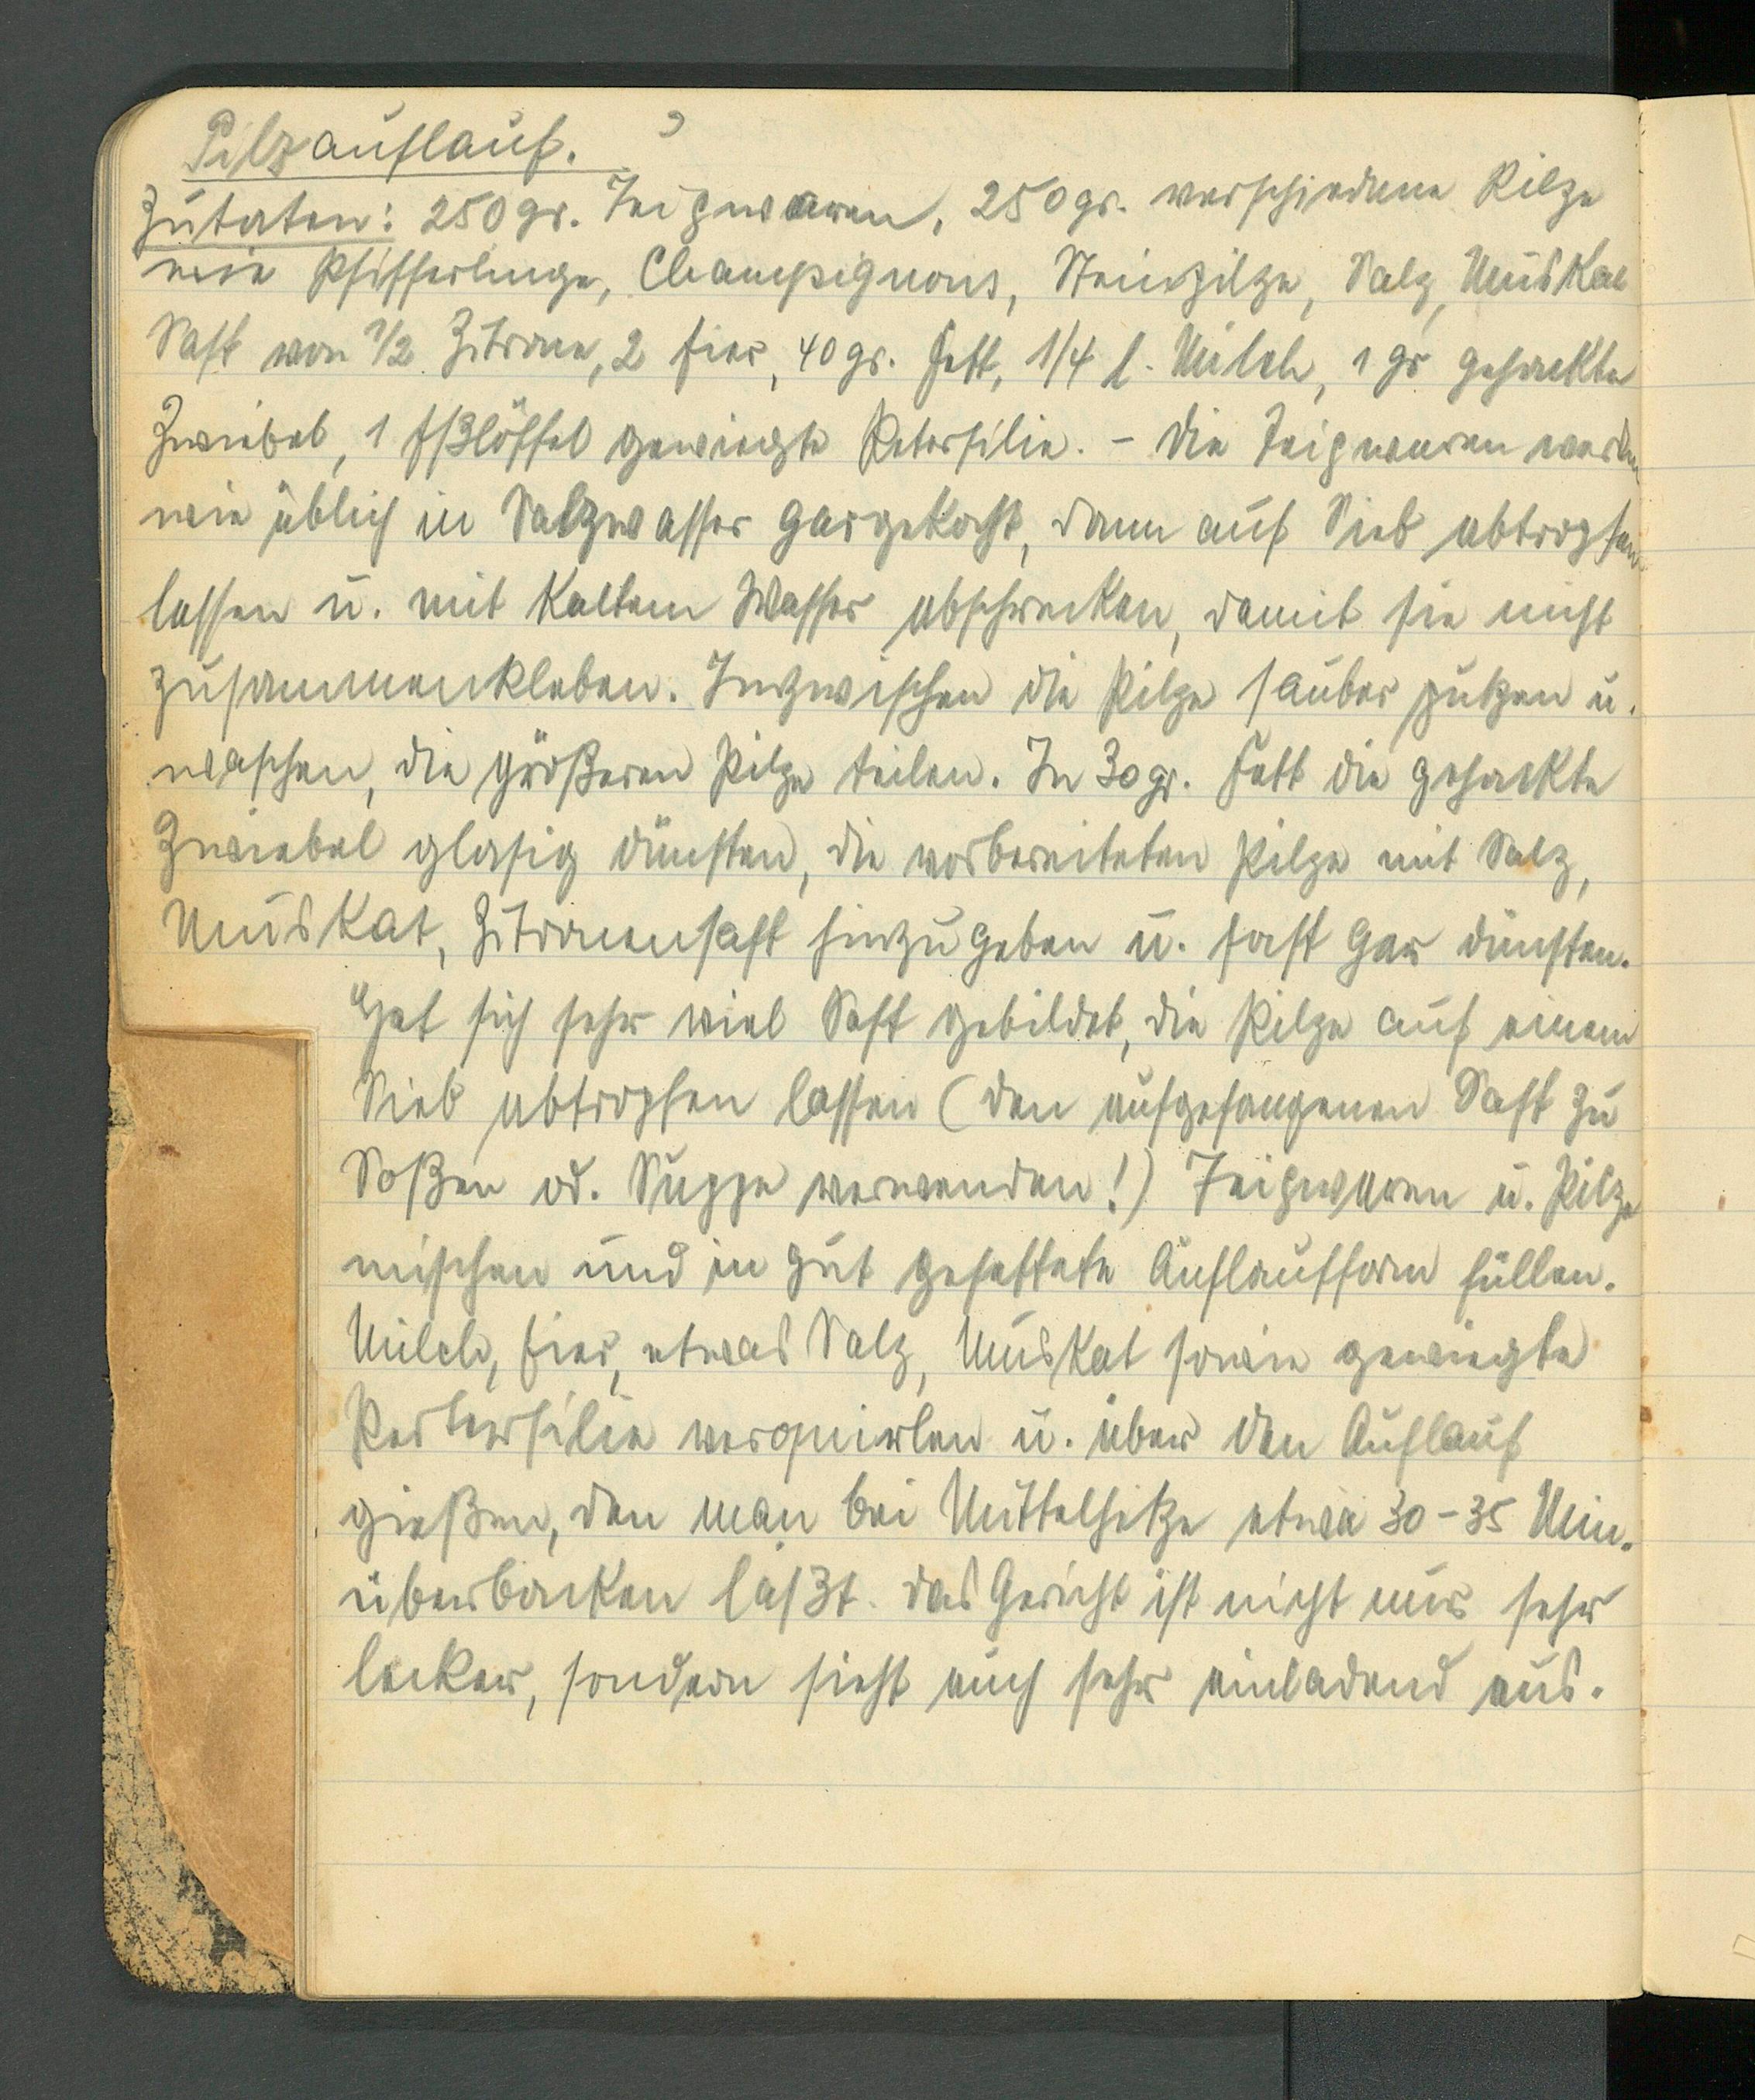 Pilzauflauf.
Zutaten: 250 gr. Teigwaren, 250 gr. verschiedene Pilze
wie Pfifferlinge, Champignons, Steinpilze, Salz, Muskat
Saft von 1/2 Zitrone, 2 Eier, 40 gr. Fett, 1/4 l. Milch, 1 gr gehackte
Zwiebel, 1 Eßlöffel gewiegte Petersilie. - Die Teigwaren werden
wie üblich in Salzwasser gargekocht, dann auf Sieb abtropfen
lassen u. mit kaltem Wasser abschrecken, damit sie nicht
zusammenkleben. Inzwischen die Pilze sauber putzen u.
waschen, die größeren Pilze teilen. In 30 gr. Fett die gehackte
Zwiebel glasig dünsten, die vorbereiteten Pilze mit Salz,
Muskat, Zitronensaft hinzugeben u. fast gar dünsten.
Hat sich sehr viel Saft gebildet, die Pilze auf einem
Sieb abtropfen lassen (den aufgefangenen Saft zu
Soßen od. Suppe verwenden!) Teigwaren u. Pilze
mischen und in gut gefettete Auflaufform füllen.
Milch, Eier, etwas Salz, Muskat sowie gewiegte
Pertersilie verquirlen u. über den Auflauf
gießen, den man bei Mittelhitze etwa 30-35 Min.
überbacken läßt. Das Gericht ist nicht nur sehr
lecker, sondern sieht auch sehr einladend aus.